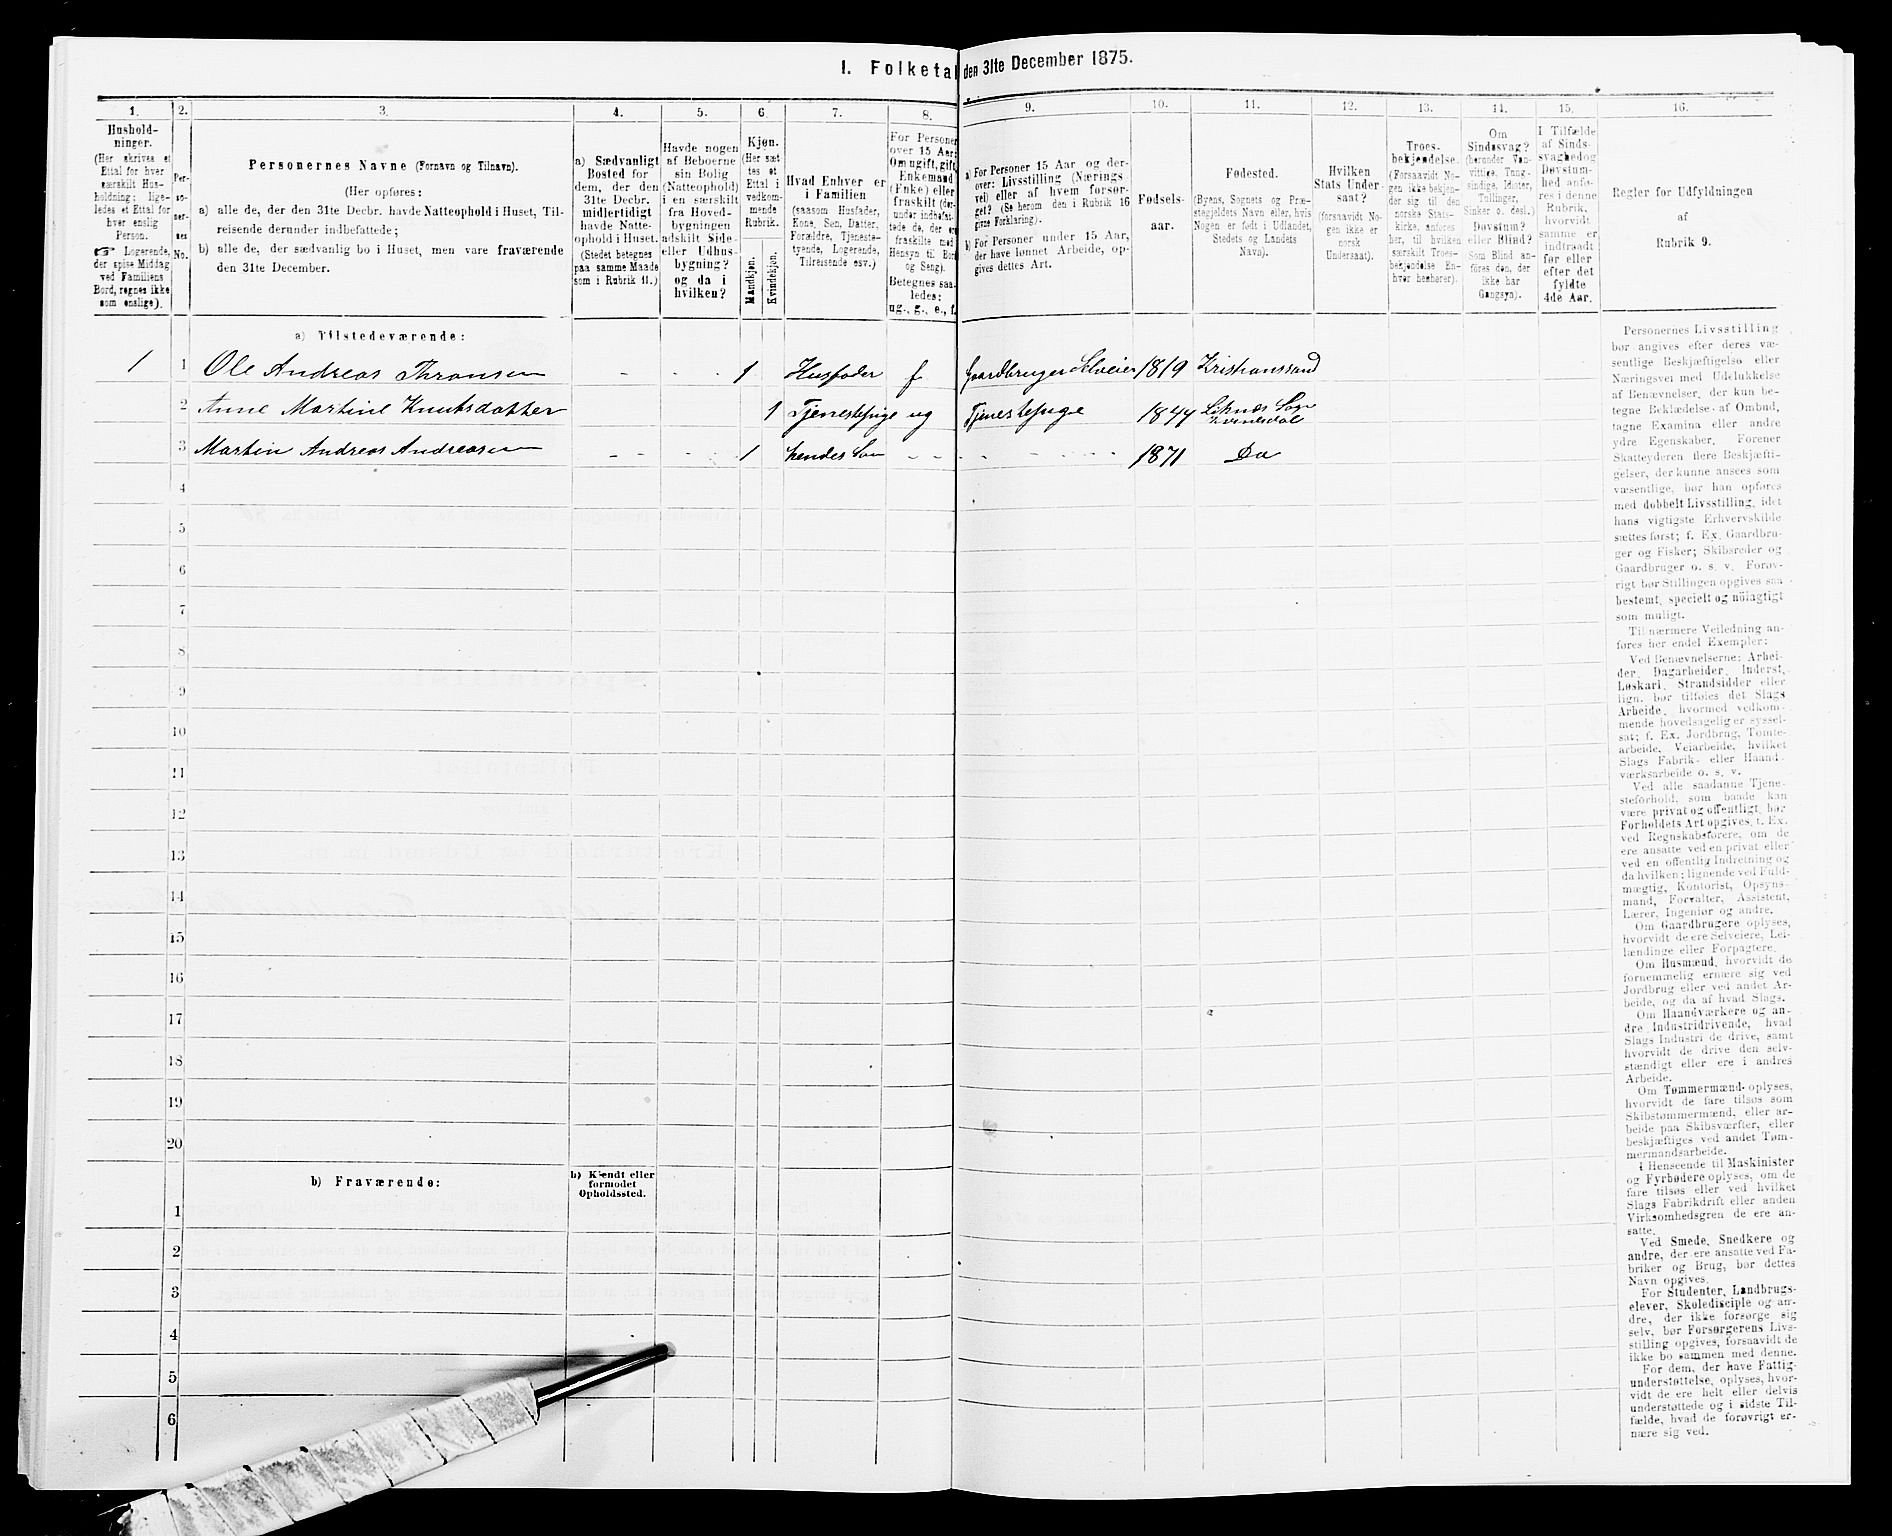 I. Folketal den 31te December 1875.
1.
Hushold-
ninger.
(Her skrives et
Ettal for hver
særskilt Hus-
holdning; lige-
ledes et Ettal for
hver enslig
Person.
☞ Logerende,
der spise Middag
ved Familiens
Bord, regnes ikke
som enslige).
2.
Per-
so-
ner-
nes
No.
3.
Personernes Navne (Fornavn og Tilnavn).
(Her opføres:
a) alle de, der den 31te Decbr. havde Natteophold i Huset, Til-
reisende derunder indbefattede;
b) alle de, der sædvanlig bo i Huset, men vare fraværende
den 31te December.
4.
a) Sædvanligt
Bosted for
dem, der den
31te Decbr.
midlertidigt
havde Natte-
ophold i Huset.
(Stedet betegnes
paa samme Maade
som i Rubrik 11.)
5.
Havde nogen
af Beboerne
sin Bolig
(Natteophold)
i en særskilt
fra Hoved-
bygningen
adskilt Side-
eller Udhus-
bygning?
og da i
hvilken?
6.
Kjøn.
(Her sæt
tes et
Ettal i
vedkom-
mende
Rubrik.
Mandkjøn.
Kvindekjøn.
7.
Hvad Enhver er
i Familien
(saasom Husfader,
Kone, Søn, Datter,
Forældre, Tjeneste-
tyende, Logerende,
Tilreisende osv.)
8.
For Personer
over 15 Aar:
Om ugift, gift,
Enkemand
(Enke) eller
fraskilt (der-
under indbefat-
tede de, der ere
fraskilte med
Hensyn til Bord
og Seng).
Betegnes saa-
ledes:
ug., g., e., f.
9.
a) For Personer 15 Aar og der-
over: Livsstilling (Nærings
vei) eller af hvem forsør-
get? (Se herom den i Rubrik 16
givne Forklaring).
b) For Personer under 15 Aar,
der have lønnet Arbeide, op-
gives dettes Art.
10.
Fødsels-
aar.
11.
Fødested.
(Byens, Sognets og Præ-
stegjeldets Navn eller, hvis
Nogen er født i Udlandet,
Stedets og Landets
Navn).
12.
Hvilken
Stats Under-
saat?
(forsaavidt No-
gen ikke er
norsk
Undersaat).
13.
Troes-
bekjendelse.
(Forsaavidt No-
gen ikke bekjen-
der sig til den
norske Stats-
kirke, anføres
her, til hvilken
særskilt Troes-
bekjendelse En-
hver henhører).
14.
Om
Sindssvag?
(herunder Van-
vittige, Tung-
sindige, Idioter,
Tullinger,
Sinker o. desl.)
Døvstum?
eller Blind?
(Som Blind an-
føres den, der
ikke har
Gangsyn).
15.
I Tilfælde
af Sinds-
svaghed og
Døvstum-
hed anfø-
res i denne
Rubrik,
hvorvidt
samme er
indtraadt
før eller
efter det
fyldte
4de Aar.
16.
Regler for Udfyldningen
af
Rubrik 9.
a) Tilstedeværende:
1 1 Ole Andreas Thronsen - - - 1 Husfader f Gaardbruger Selveier 1819 Kristianssand
2 Anne Martine Knutsdatter 1 Tjenestepige ug Tjenestepige 1844 Liknæs Sogn
Kvinesdal
3 Martin Andreas Andreasen - - - 1 hendes Søn - - - - - 1871 Do
4
5
6
7
8
9
10
11
12
13
14
15
16
17
18
19
20
b) Fraværende:
b) Kjendt eller
formodet
Opholdssted.
1
2
3
4
5
6
Personernes Livsstilling
bør angives efter deres væ-
sentlige Beskjæftigelse eller
Næringsvei med Udelukkelse
af Benævnelser, der kun be-
tegne Beklædelse af Ombud,
tagne Examina eller andre
ydre Egenskaber. Forener
Skatteyderen flere Beskjæfti-
gelser, der kunne ansees som
væsentlige, bør han opføres
med dobbelt Livsstilling, idet
hans vigtigste Erhvervskilde
sættes først; f. Ex. Gaardbru-
ger og Fisker; Skibsreder og
Gaardbruger o. s. v. Forøv-
rigt bør Stillingen opgives saa
bestemt, specielt og nøiagtigt
som muligt.
Til nærmere Veiledning an-
føres her endel Exempler:
Ved Benævnelserne: Arbei-
der, Dagarbeider, Inderst,
Løskarl, Strandsidder eller
lign. bør tilføies det Slags
Arbeide, hvormed vedkom-
mende hovedsagelig er syssel-
sat; f. Ex. Jordbrug, Tomte-
arbeide, Veiarbeide, hvilket
Slags Fabrik- eller Haand-
værksarbeide o. s. v.
Ved alle saadanne Tjene-
steforhold, som baade kan
være privat og offentligt, bør
Forholdets Art opgives, f. Ex.
ved Regnskabsførere, om de
ere ansatte ved en privat eller
ved en offentlig Indretning og
da hvilken; lignende ved Fuld-
mægtig, Kontorist, Opsyns-
mand, Forvalter, Assistent,
Lærer, Ingeniør og andre.
Om Gaardbrugere oplyses,
hvorvidt de ere Selveiere, Lei-
lændinge eller Forpagtere.
Om Husmænd, hvorvidt de
fornemmelig ernære sig ved
Jordbrug eller ved andet Ar-
beide, og da af hvad Slags.
Om Haandværkere og an-
dre Industridrivende, hvad
Slags Industri de drive, samt
hvorvidt de drive den selv-
stændigt eller ere i andres
Arbeide.
Om Tømmermænd oplyses,
hvorvidt de fare tilsøs som
Skibstømmermænd, eller ar-
beide paa Skibsværfter, eller
beskjæftiges ved andet Tøm-
mermandsarbeide.
I Henseende til Maskinister
og Fyrbødere oplyses, om de
fare tilsøs eller ved hvilket
Slags Fabrikdrift eller anden
Virksomhedsgren de ere an-
satte.
Ved Smede, Snedkere og
andre, der ere ansatte ved Fa-
briker og Brug, bør dettes
Navn opgives.
For Studenter, Landbrugs-
elever, Skoledisciple og an-
dre, der ikke forsørge sig
selv, bør Forsørgerens Livs-
stilling opgives, forsaavidt de
ikke bo sammen med denne.
For dem, der have Fattig-
understøttelse, oplyses, hvor-
vidt de ere helt eller delvis
understøttede og i sidste Til-
fælde, hvad de forøvrigt er-
nære sig ved.